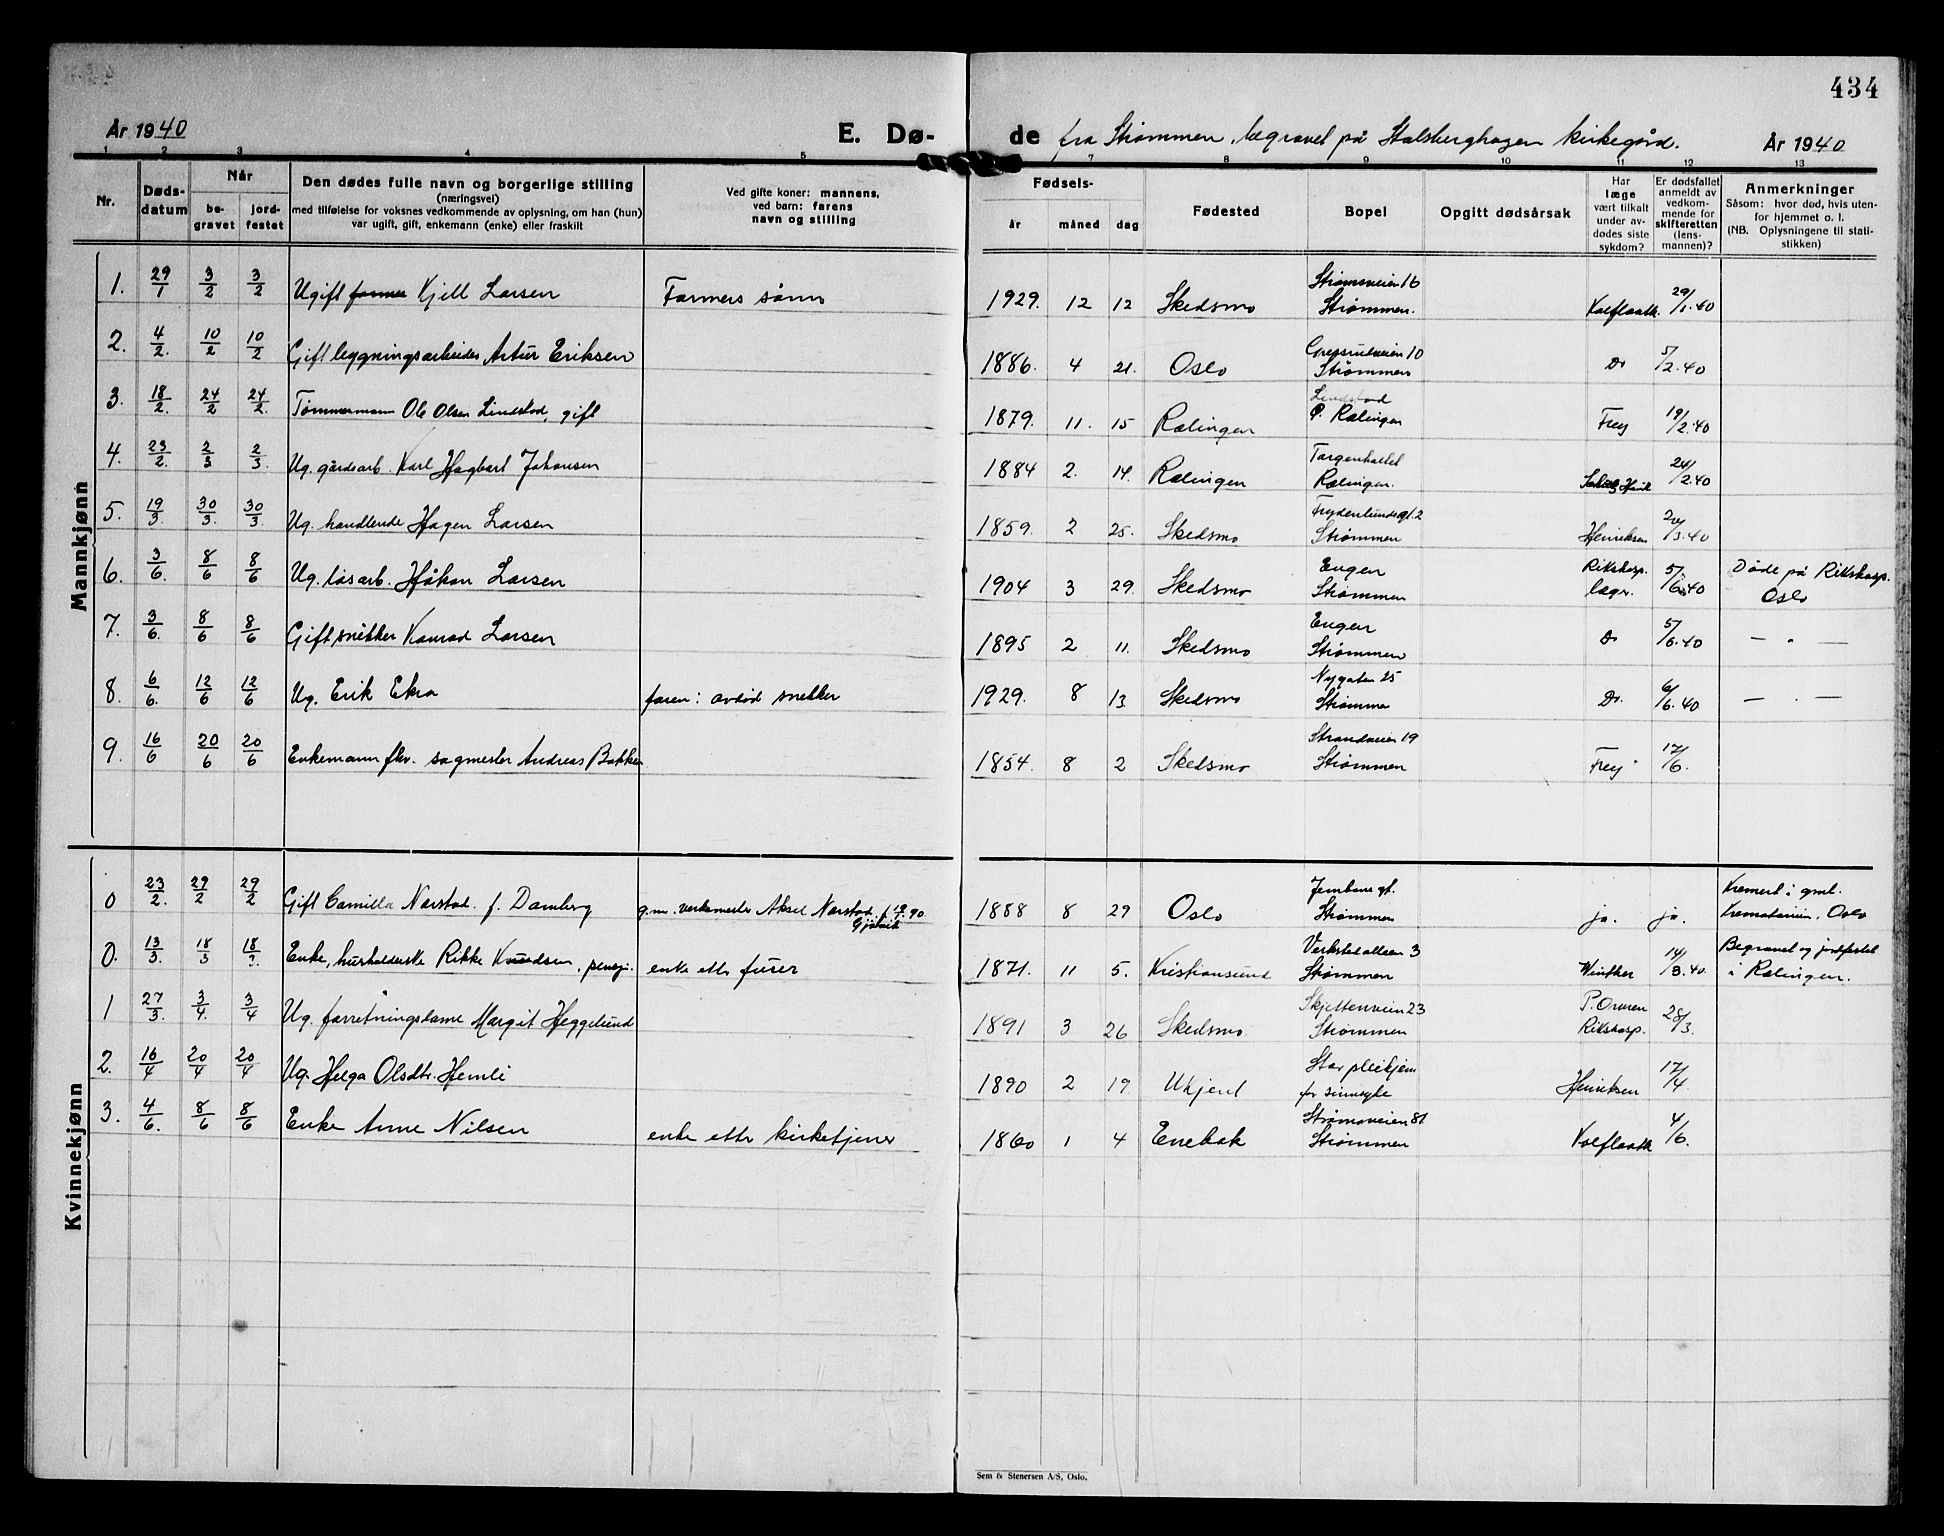 434
År 1940 E. Dø- de fra Strømmen, begravet på Stalsberghagen kirkegård. År 1940
1 2 3 4 5 7 8 9 10 11 12 13
Nr. Døds-datum Når be-gravet jord-festet Den dødes fulle navn og borgerlige stilling (næringsvei) med tilføielse for voksnes vedkommende av oplysning, om han (hun) var ugift, gift, enkemann (enke) eller fraskilt Ved gifte koner: mannens, ved barn: farens navn og stilling Fødsels- år måned dag Fødested Bopel Opgitt dødsårsak Har læge vært tilkalt under av-dødes siste sykdom? Er dødsfallet anmeldt av vedkom-mende for skifteretten (lens-mannen)? Anmerkninger Såsom: hvor død, hvis uten-for hjemmet o. l. (NB. Oplysningene til stati-stikken)
Mannkjønn
1. 29/1 3/2 3/2 Ugift farmer Kjell Larsen Farmers sønn 1929. 12 12 Skedsmo Strømsveien 16 Strømmen. Kolflaath. 29/1.40
2. 4/2. 10/2 10/2 Gift bygningsarbeider Artur Eriksen 1886. 4 21. Oslo 10 Strømmen Do 5/2.40
3. 18/2. 24/2 24/2. Tømmermann Ole Olsen Lindstad, gift 1879. 11. 15 Rælingen Lindstad P. Rælingen Frey 19/2.40
4. 23/2. 2/3 2/3. Ug. gårdsarb. Karl Hagbart Johansen 1884 2. 14. Rælingen Rælingen. 24/2.40
5. 19/3 30/3. 30/3. Ug. handlende Hagen Larsen 1859. 2 25. Skedsmo Frydenlundsgt. 2 Strømmen Henriksen 20/3.40
6. 3/6. 8/6 8/6 Ug. løsarb. Håkon Larsen 1904 3 29. Skedsmo Engen Strømmen Rikshosp. læger. 5/6.40 Døde på Rikshosp. Oslo
7. 3/6. 8/6 8/6 Gift snekker Konrad Larsen 1895 2 11. Skedsmo Engen Strømmen Do 5/6.40 — " —
8. 6/6. 12/6 12/6 Ug. Erik Ekra faren: avdød snekker 1929. 8 13 Skedsmo Nygaten 25 Strømmen Do. 6/6.40 — . —
9. 16/6 20/6 20/6 Enkemann fhv. sagmester Andreas Bakken 1854. 8 2 Skedsmo Strandveien 19 Strømmen Frey 17/6.
Kvinnekjønn
0 23/2. 29/2 29/2 Gift Camilla Nærstad f. Damberg g.m. verksmester Aksel Nærstad f. 90. Gjøvik 1888 8 29 Oslo Jernbanegt. Strømmen ja. ja. Kremert i gml. Krematoriein, Oslo
0. 13/3. 18/3 18/3. Enke, husholderske Rikke Knudsen, pensj. enke etter fører 1871. 11 5. Kristiansund Verkstedalleen 3 Strømmen Winther 14/3.40. Begravet og jordfestet i Rælingen.
1 27/3. 3/4. 3/4 Ug. forretningsdame Margit Heggelund 1891 3 26 Skedsmo Skjettenveien 23 Strømmen Rikshosp. 28/3.
2. 16/4 20/4 20/4 Ug. Helga Olsdtr. Hemli 1890 2 19 Ukjent pleiehjem for sinnsyke Henriksen 17/4
3. 4/6. 8/6 8/6 Enke Anne Nilsen enke etter kirketjener 1860 1 4 Enebak Strømsveien 81 Strømmen Kolflaath 4/6.
Sem & Stenersen A/S, Oslo.